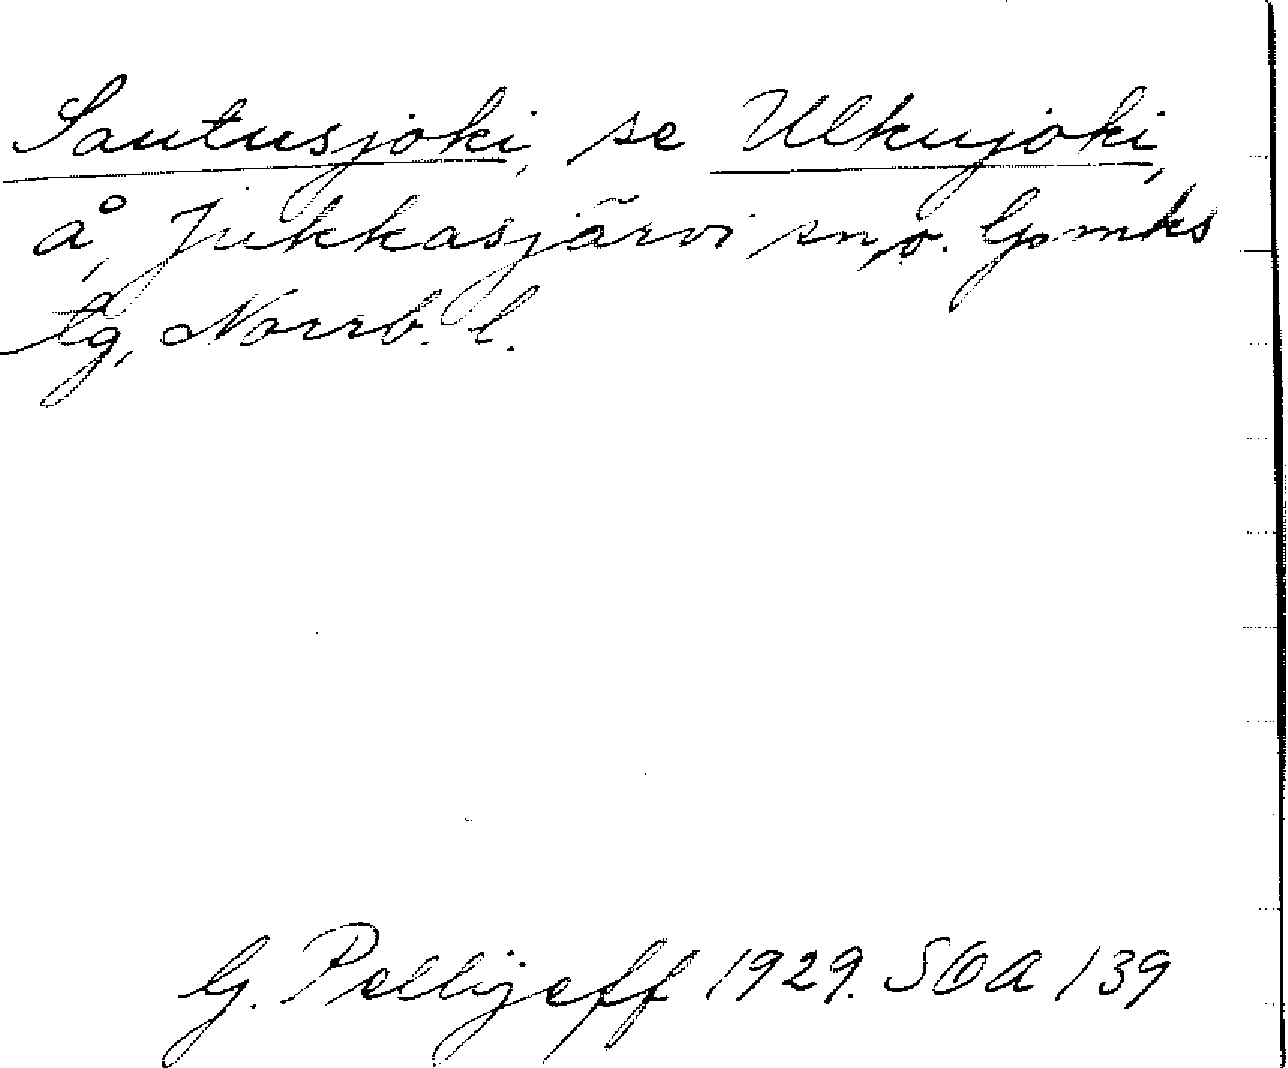 Sautusjoki, se Ulkujoki,
å, Jukkasjärvi sn o. Gvmks
tg, Norrb. l.
G. Pellijeff 1929. SOA 139